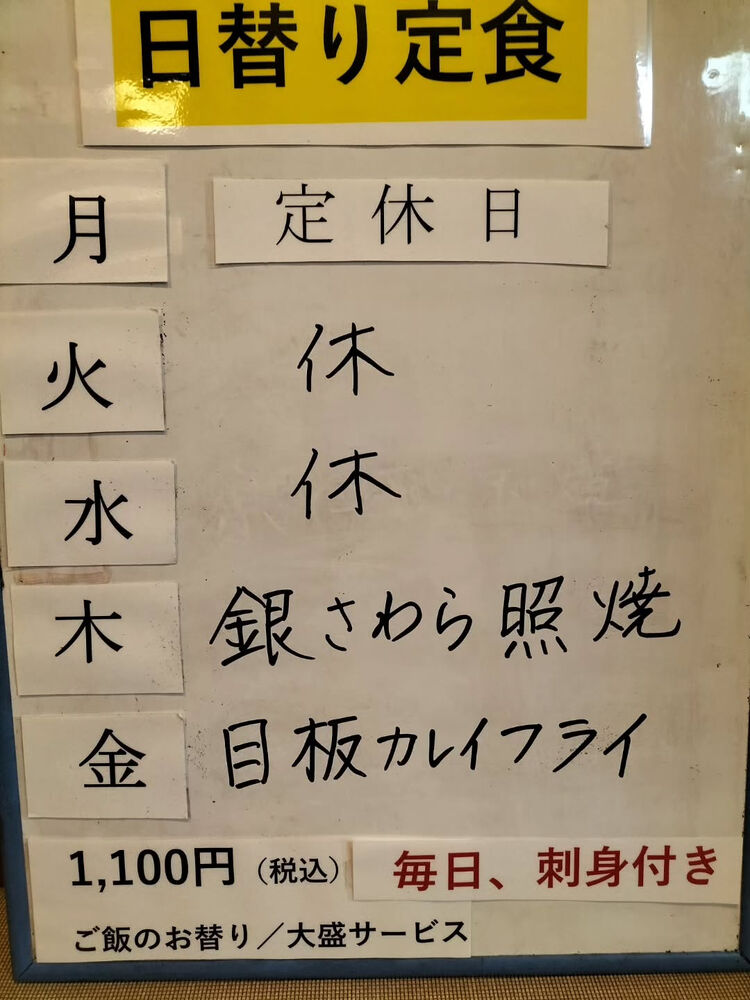 日替り定食
月 定休日
火 休
水 休
木 銀さわら照焼
金 目板カレイフライ
1,100円（税込） 毎日、刺身付き
ご飯のお替り／大盛サービス